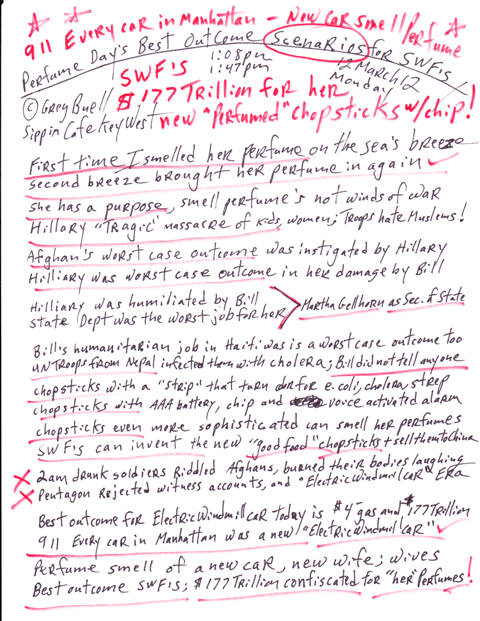 911 Every car in Manhattan - New car smell/Perfume
Perfume Day's Best Outcome Scenarios for SWF's
1:08pm
1:47pm
12 March 12
Monday
© Greg Buell
Sippin Cafe Key West
SWF's
$177 Trillion for her
new "Perfumed" chopsticks w/chip!
First time I smelled her perfume on the sea's breeze
second breeze brought her perfume in again
She has a purpose, smell perfume's not winds of war
Hillory "Tragic" massacre of kids, women; Troops hate Muslems!
Afghan's worst case outcome was instigated by Hillary
Hilliary was worst case outcome in her damage by Bill
Hilliary was humiliated by Bill
State Dept was the worst job for her
Martha Gellhorn as Sec. of State
Bill's humanitarian job in Haiti was is a worst case outcome too
UN Troops from Nepal infected them with cholera; Bill did not tell anyone
chopsticks with a "strip" that turn for e.coli, cholera, strep
chopsticks with AAA battery, chip and voice activated alarm
chopsticks even more sophisticated can smell her perfumes
SWF's can invent the new "good food" chopsticks + sell them to China
2am drunk soldiers Riddled Afghans, burned their bodies laughing
Pentagon Rejected witness accounts, and "Electric Windmill CAR" ERA
Best outcome for Electric Windmill CAR today is $4 gas and $177 Trillion
911 Every car in Manhattan was a new "Electric Windmill CAR"
Perfume smell of a new car, new wife; wives
Best outcome SWF's; $177 Trillion confiscated for "her" Perfumes!